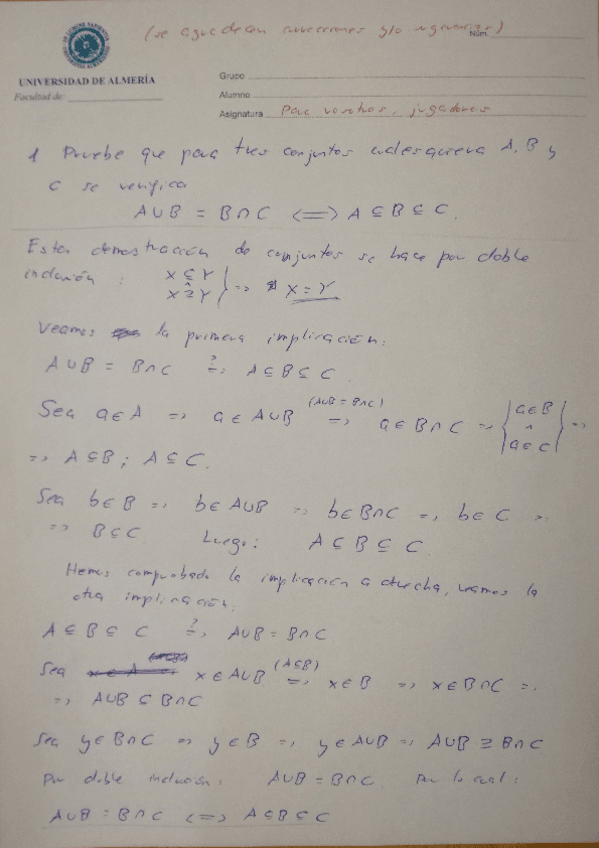 (se agradecen correcciones y/o sugerencias)
Núm.
UNIVERSIDAD DE ALMERÍA
Facultad de:
Grupo
Alumno
Asignatura Para vosotros, jugadores
1 Pruebe que para tres conjuntos cualesquiera A, B y
C se verifica
A∪B = B∩C <=> A⊆B⊆C.
Esta demostración de conjuntos se hace por doble
inclusión: X⊆Y ^ X⊇Y } => X=Y
Veamos la primera implicación:
A∪B = B∩C ?=> A⊆B⊆C.
Sea a∈A => a∈A∪B (A∪B = B∩C) => a∈B∩C => { a∈B ^ a∈C } =>
=> A⊆B; A⊆C.
Sea b∈B => b∈A∪B => b∈B∩C => b∈C =>
=> B⊆C. Luego: A⊆B⊆C.
Hemos comprobado la implicación a derecha, veamos la
otra implicación:
A⊆B⊆C ?=> A∪B = B∩C.
Sea x∈A∪B (A⊆B) => x∈B => x∈B∩C =>
=> A∪B⊆B∩C
Sea y∈B∩C => y∈B => y∈A∪B => A∪B⊇B∩C
Por doble inclusión: A∪B = B∩C. Por lo cual:
A∪B = B∩C <=> A⊆B⊆C